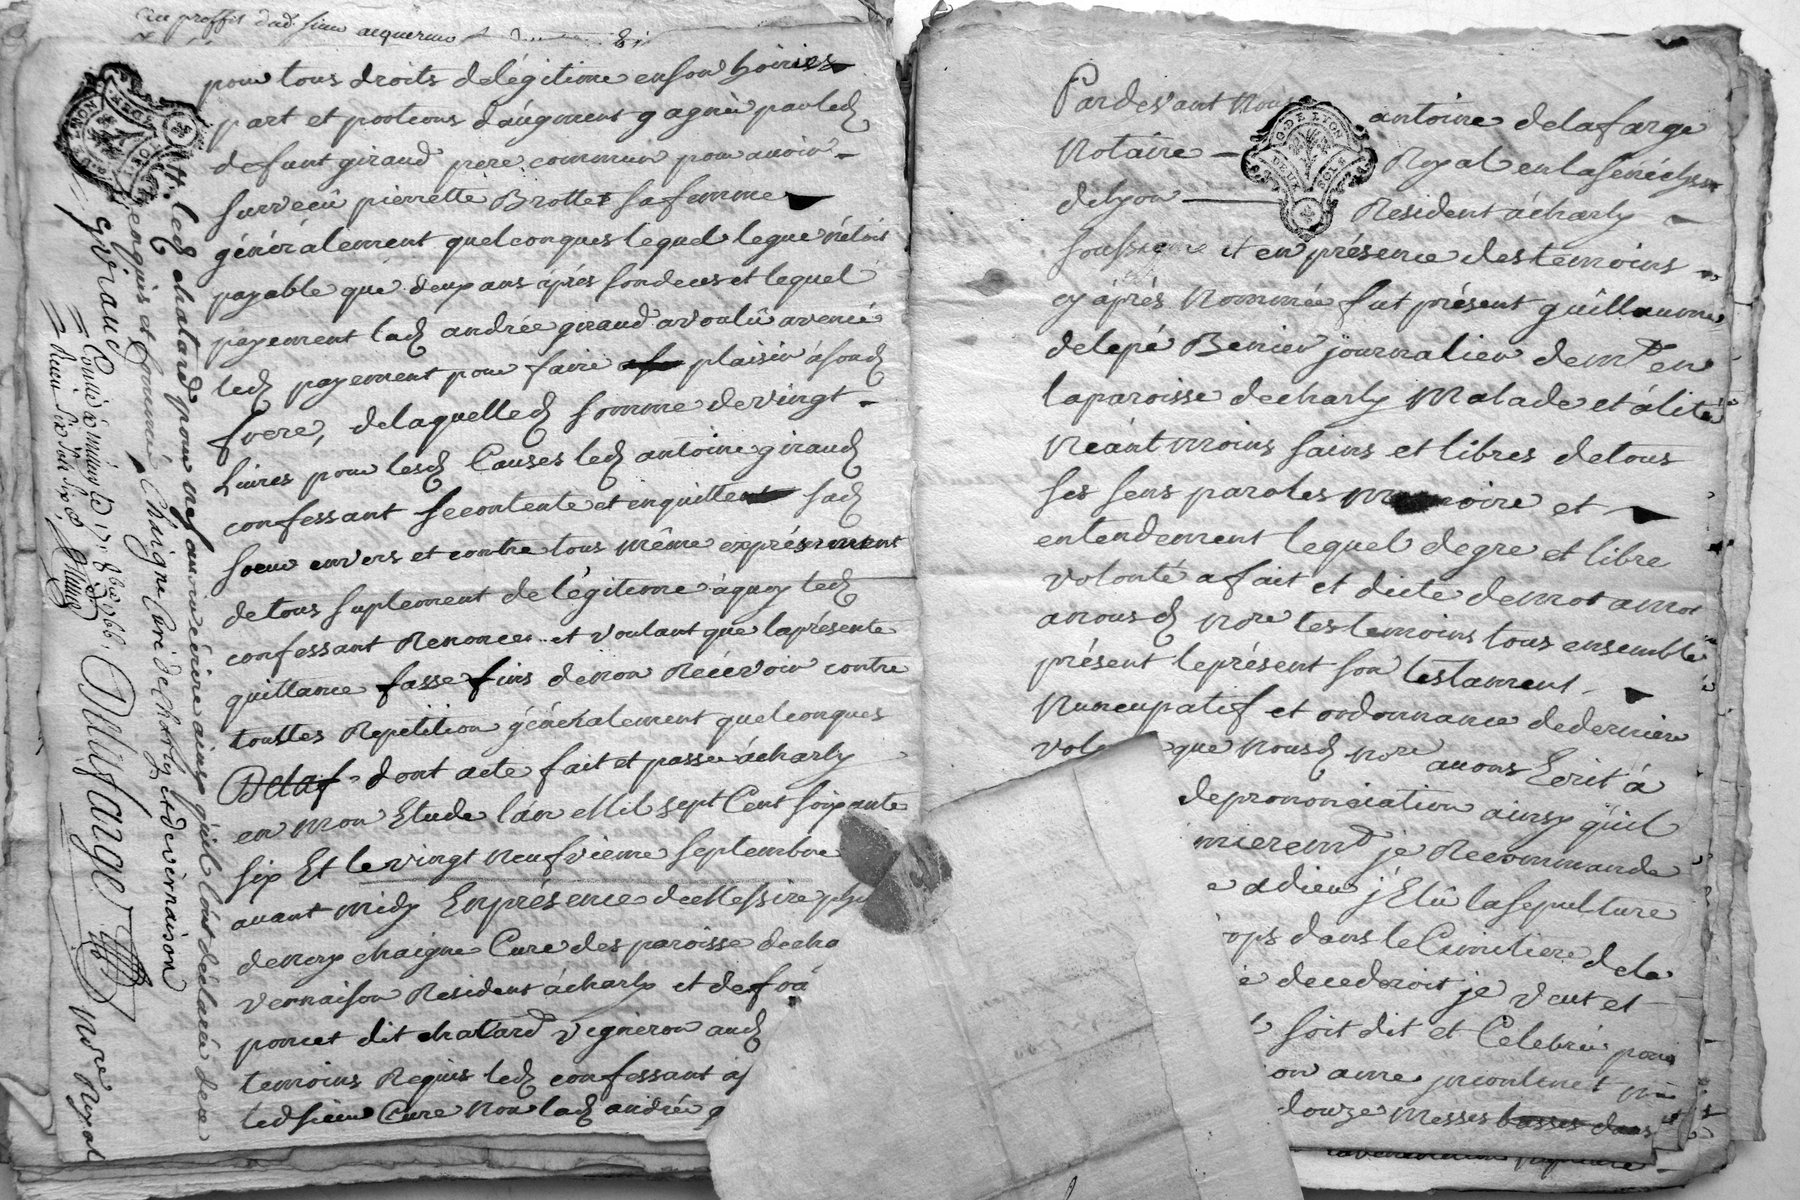 au proffit dud sieur acquereur
pour tous droits de légitime en son hoirie
part et portions d'augment gagnée par led
defunt giraud pere commun pour avoir
survecu pierrette Brottet sa femme
généralement quelconques lequel legue n'étoit
payable que deux ans aprés son deces et lequel
payement lad andrée giraud a voulû
led payement pour faire plaisir à sond
frere, de laquelle d somme de vingt
Livres pour lesd Causes led antoine giraud
confessant se contente et en quitte sad
soeur envers et contre tous même expressement
de tous suplement de légitime à quoy led
confessant Renonce et voulant que la présente
quittance fasse fins de non Récévoir contre
touttes Repetition généralement quelconques
Delaf dont acte fait et passé à charly
en mon Etude l'an Mil sept Cent soixante
six Et le vingt neufvieme septembre
avant midy En présence de Messire
chaigne Curé des paroisse de cha
vernaison Résident à charly et de
poncet dit chatard vigneron aud
temoins Requis led confessant
led sieur Curé Non lad andrée g
led chatard pour ne sçavoir écrire ainsy qu'il l'ont déclaré de ce
enquis et sommé Chaigne Curé de Charly et de vernaison
giraud
Delafarge Nore Royal
Par devant Nous antoine delafarge
Notaire Royal en la sénéchaussée
de Lyon Résident à charly
soussigné et en présence des temoins
cy aprés Nommée fut présent guillaume
delepé Benier journalier demt en
la paroisse de charly Malade et alité
Néantmoins sains et libres de tous
ses sens paroles Memoire et
entendement lequel de gre et libre
volonté a fait et dicte de mot a mot
a nousd Nore les temoins tous ensemble
présent le présent son testament
Nuncupatif et ordonnance de derniere
volonté que nousd Nore avons Ecrit à
de prononciation ainsy qu'il
mieremt je Recommande
e a dieu j'Elû la sepulture
orps dans le Cimitiere de la
decederoit je veut et
soit dit et Célébrée pour
on ame incontinet
douze Messes basses dans